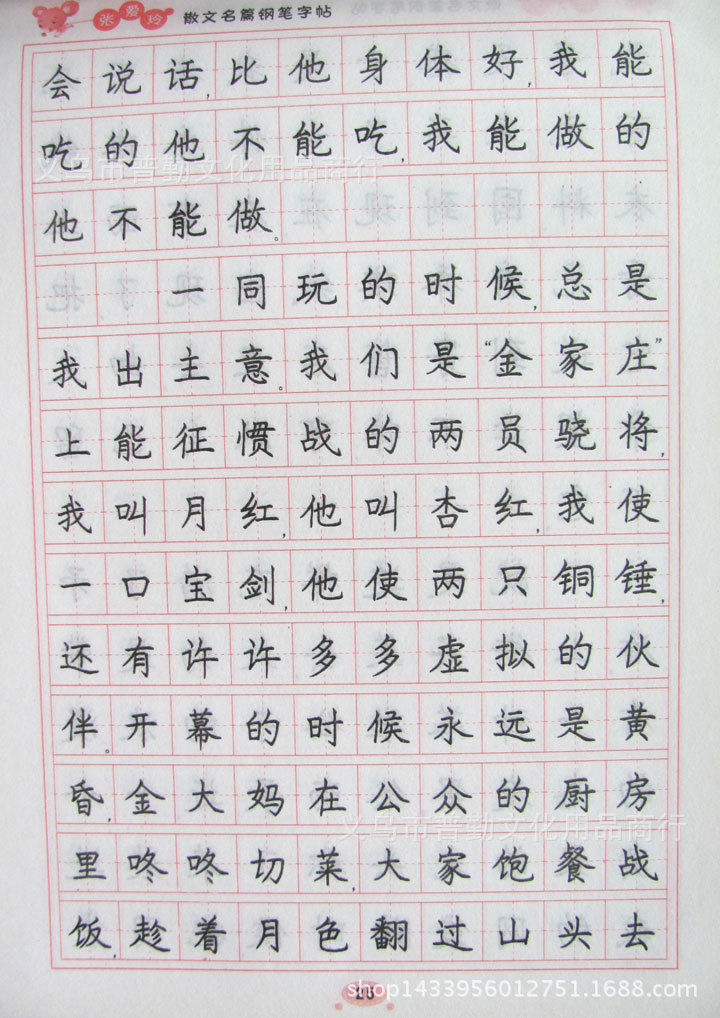 张爱玲 散文名篇钢笔字帖
会说话,比他身体好,我能
吃的他不能吃,我能做的
他不能做。
一同玩的时候,总是
我出主意。我们是“金家庄”
上能征惯战的两员骁将,
我叫月红,他叫杏红,我使
一口宝剑,他使两只铜锤,
还有许许多多虚拟的伙
伴。开幕的时候永远是黄
昏,金大妈在公众的厨房
里咚咚切菜,大家饱餐战
饭,趁着月色翻过山头去
义乌市普勤文化用品商行
义乌市普勤文化用品商行
shop1433956012751.1688.com